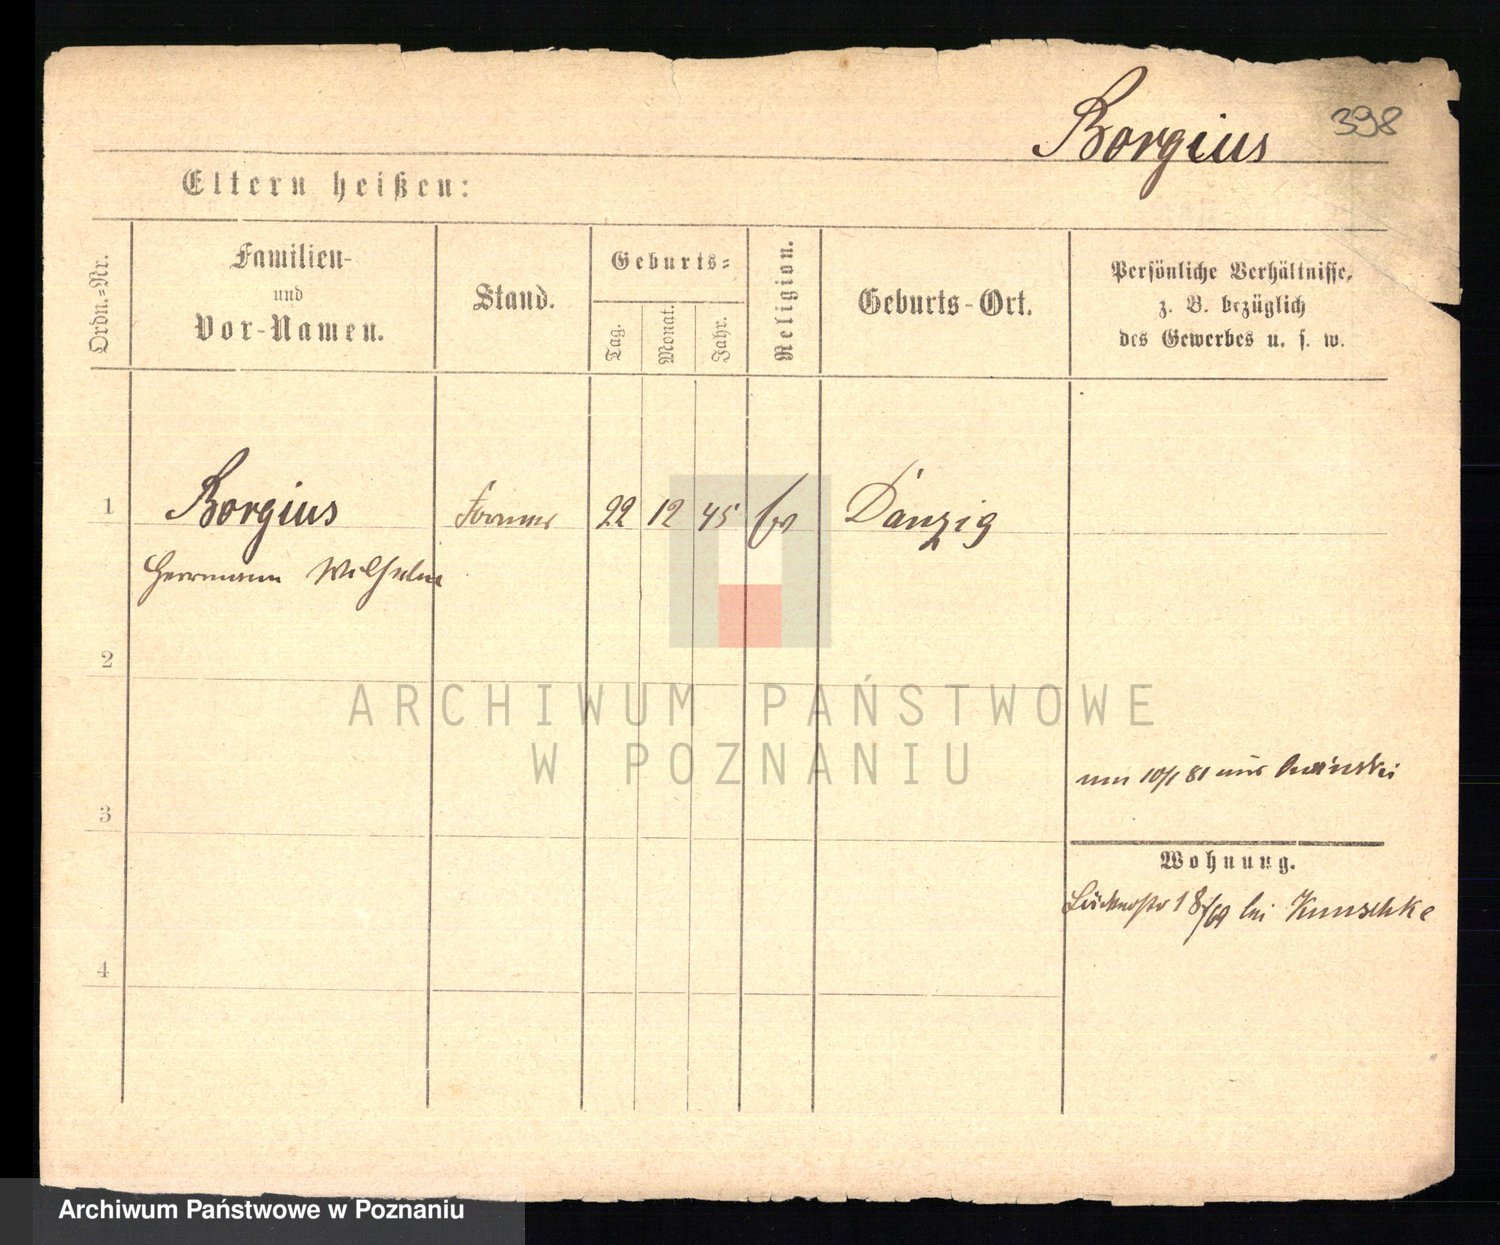 Borgius 398
Eltern heißen:
Ordn.-Nr.
Familien-
und
Vor-Namen.
Stand.
Geburts-
Tag.
Monat.
Jahr.
Religion.
Geburts-Ort.
Persönliche Verhältnisse,
z. B. bezüglich
des Gewerbes u. s. w.
1 Borgius Former 22 12 45 Ev Danzig
Herrmann Wilhelm
2
ARCHIWUM PAŃSTWOWE
W POZNANIU
10/1 81
3
Wohnung.
18/69 bei Kunschke
4
Archiwum Państwowe w Poznaniu